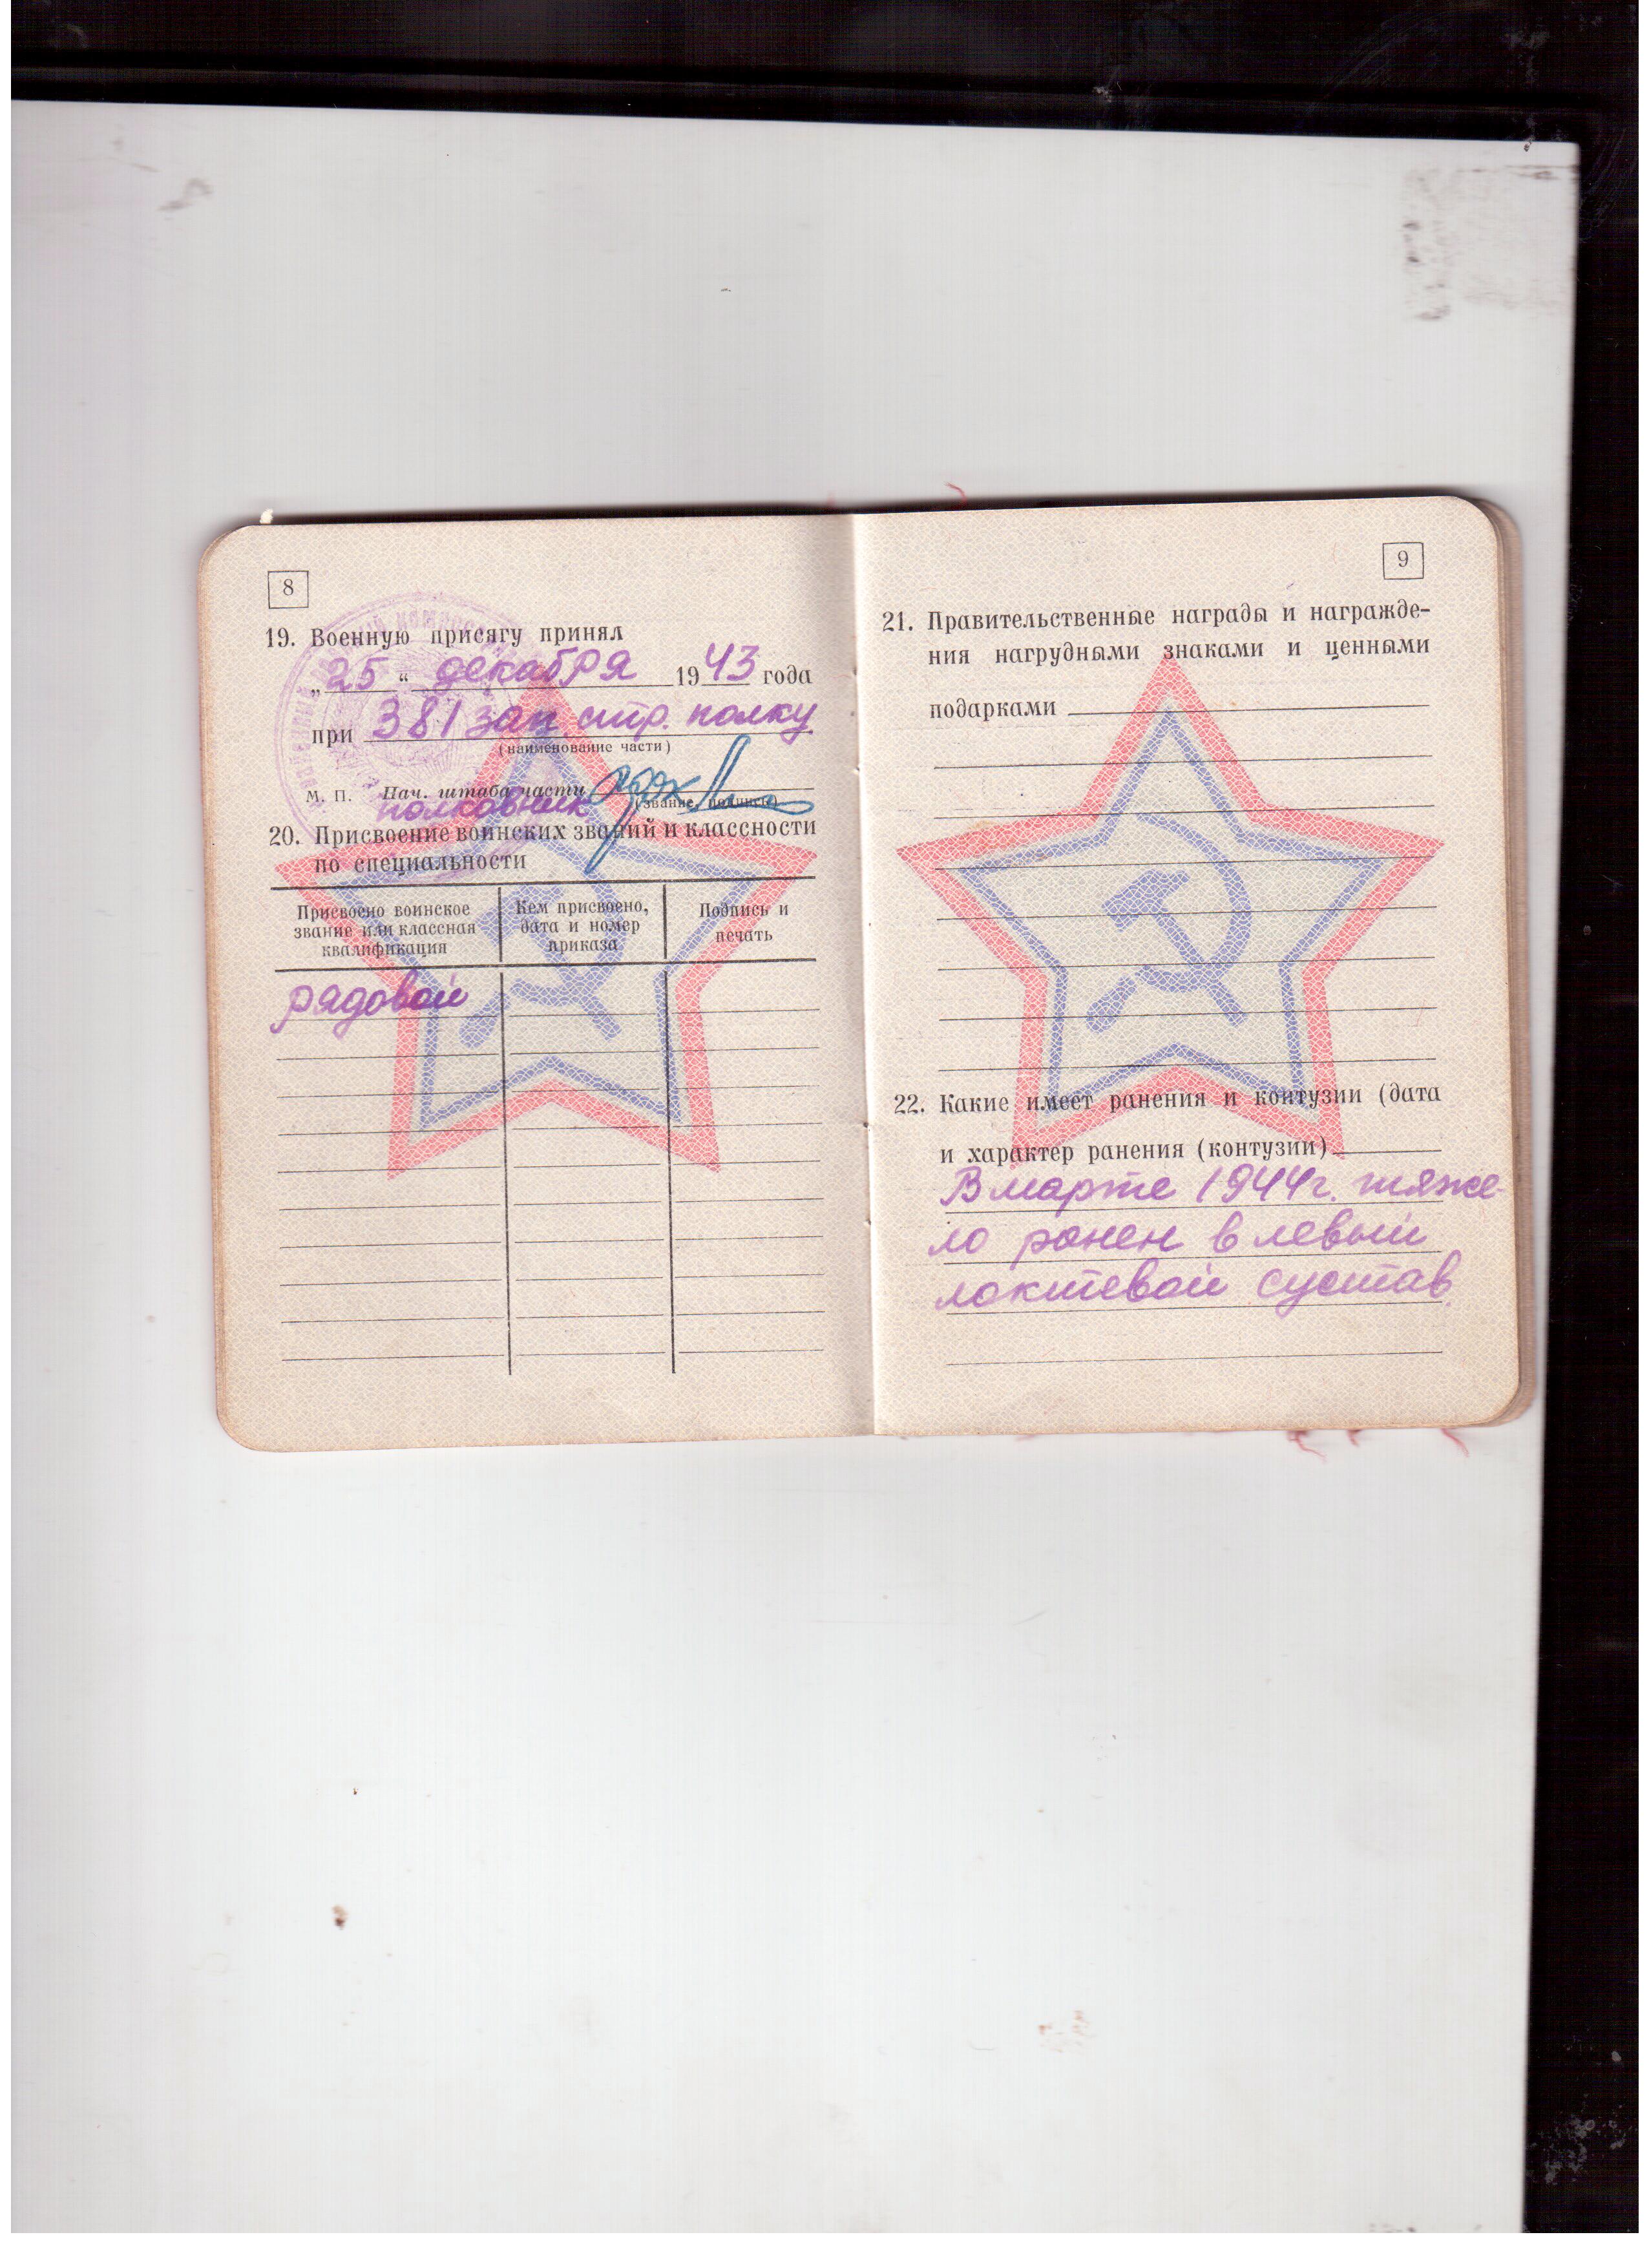 8
19. Военную присягу принял
„25“ декабря 1943 года
при 381 зап. стр. полку
(наименование части)
М. П. Нач. штаба части
полковник (звание, подпись)
20. Присвоение воинских званий и классности
по специальности
Присвоено воинское
звание или классная
квалификация
Кем присвоено,
дата и номер
приказа
Подпись и
печать
рядовой
9
21. Правительственные награды и награжде-
ния нагрудными знаками и ценными
подарками
22. Какие имеет ранения и контузии (дата
и характер ранения (контузии)
В марте 1944г. тяже-
ло ранен в левый
локтевой сустав.